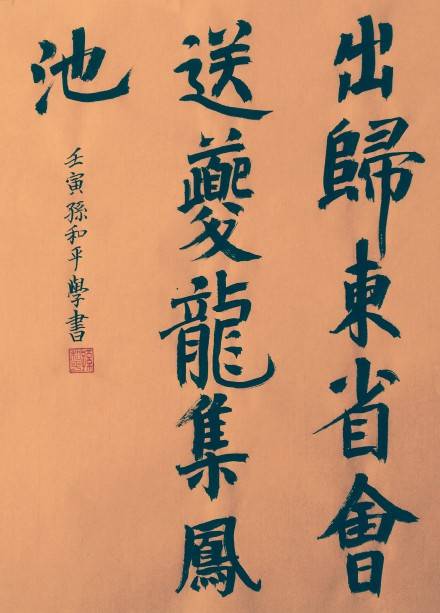 出歸東省會
送夔龍集鳳
池
壬寅孫和平學書